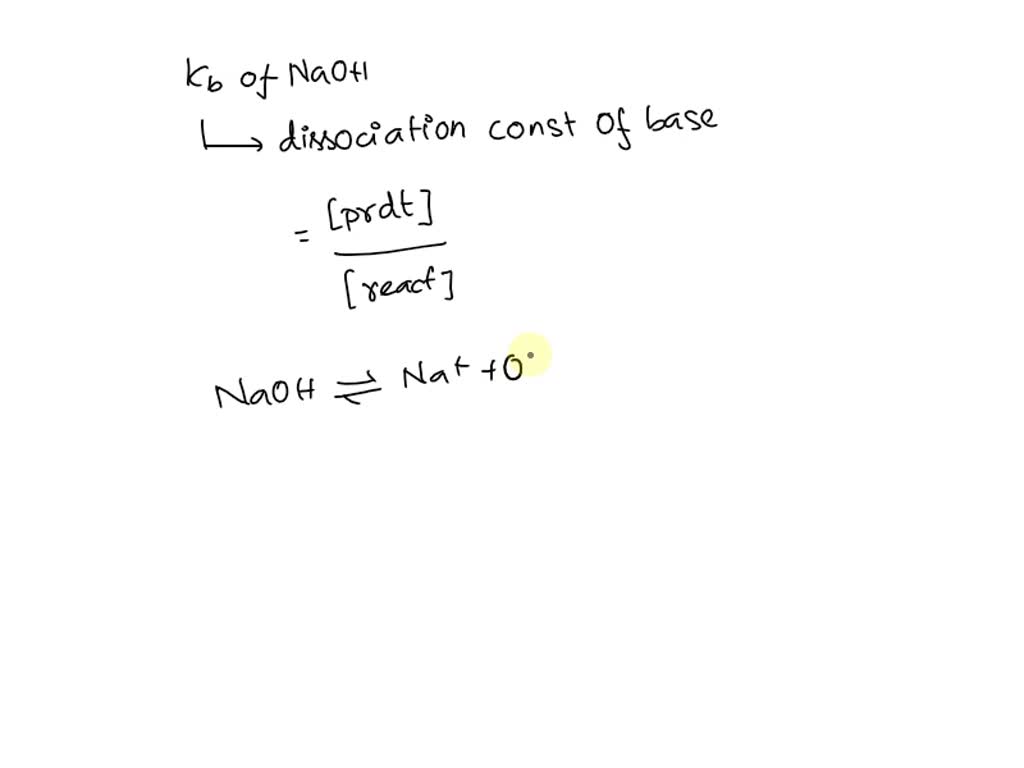 Kb of NaOH
↳ dissociation const of base
= [prdt]
[react]
NaOH ⇌ Na+ + O